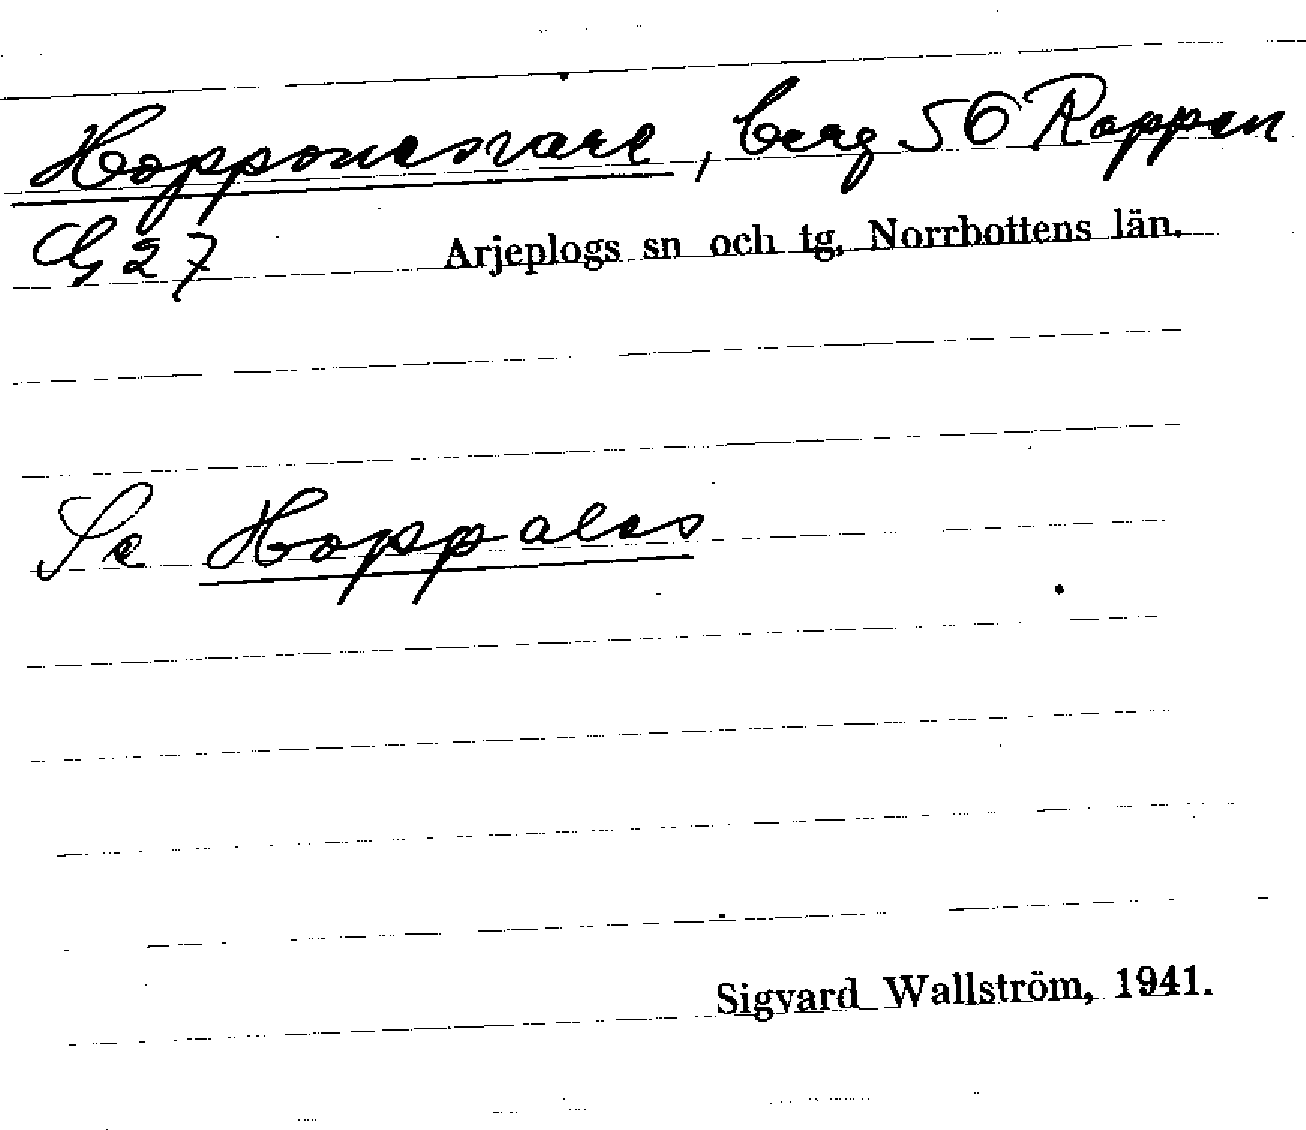 Hopponesvare, berg SO Rappen
G 27 Arjeplogs sn och tg, Norrbottens län.
Se Hoppales
Sigvard Wallström, 1941.